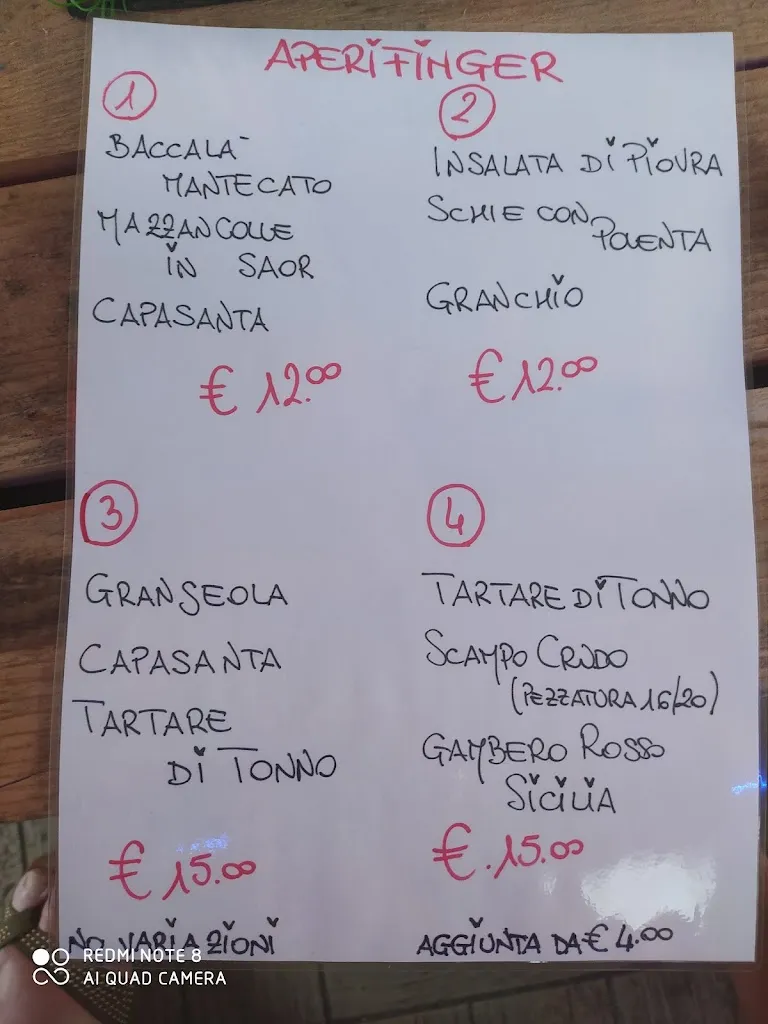 APERIFINGER
1
BACCALÀ
MANTECATO
MAZZANCOLLE
IN SAOR
CAPASANTA
€ 12.00
2
INSALATA DI PIOVRA
SCHIE CON
POLENTA
GRANCHIO
€ 12.00
3
GRANSEOLA
CAPASANTA
TARTARE
DI TONNO
€ 15.00
4
TARTARE DI TONNO
SCAMPO CRUDO
(PEZZATURA 16/20)
GAMBERO ROSSO
SICILIA
€ 15.00
NO VARIAZIONI
AGGIUNTA DA € 4.00
REDMI NOTE 8
AI QUAD CAMERA